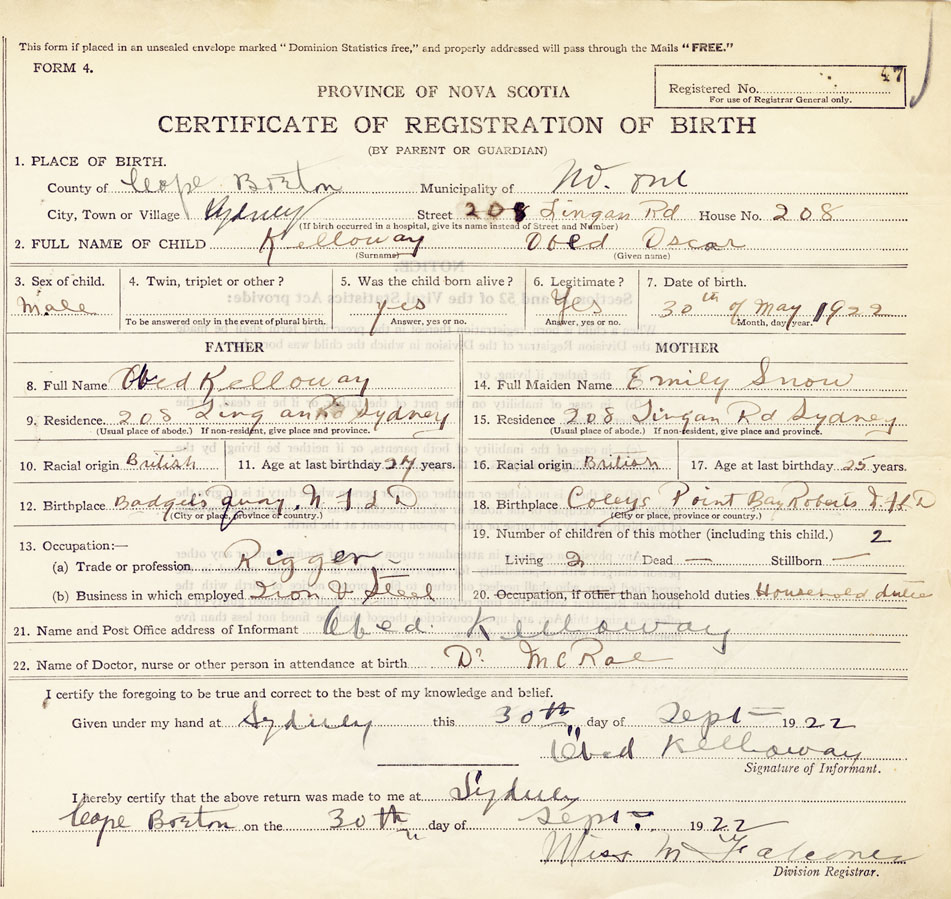 This form if placed in an unsealed envelope marked "Dominion Statistics free," and properly addressed will pass through the Mails "FREE."
FORM 4.
47
Registered No.
For use of Registrar General only.
PROVINCE OF NOVA SCOTIA
CERTIFICATE OF REGISTRATION OF BIRTH
(BY PARENT OR GUARDIAN)
1. PLACE OF BIRTH.
County of Cape Breton Municipality of No. one
City, Town or Village Sydney Street 208 Lingan Rd House No. 208
(If birth occurred in a hospital, give its name instead of Street and Number)
2. FULL NAME OF CHILD Kelloway Obed Oscar
(Surname) (Given name)
3. Sex of child. 4. Twin, triplet or other? 5. Was the child born alive? 6. Legitimate? 7. Date of birth.
Male yes Yes 30th of May 1922
To be answered only in the event of plural birth. Answer, yes or no. Answer, yes or no. Month, day, year.
FATHER MOTHER
8. Full Name Obed Kelloway 14. Full Maiden Name Emily Snow
9. Residence. 208 Lingan Rd Sydney 15. Residence 208 Lingan Rd Sydney
(Usual place of abode.) If non-resident, give place and province. (Usual place of abode.) If non-resident, give place and province.
10. Racial origin British 11. Age at last birthday 27 years. 16. Racial origin British 17. Age at last birthday 25 years.
12. Birthplace Badger's Quay, N F L D 18. Birthplace Coleys Point Bay Roberts N.F.L.D
(City or place, province or country.) (City or place, province or country.)
13. Occupation:— 19. Number of children of this mother (including this child.) 2
(a) Trade or profession. Rigger Living 2 Dead — Stillborn —
(b) Business in which employed Iron & Steel 20. Occupation, if other than household duties Household duties
21. Name and Post Office address of Informant Obed. Kelloway
22. Name of Doctor, nurse or other person in attendance at birth Dr McRae
I certify the foregoing to be true and correct to the best of my knowledge and belief.
Given under my hand at Sydney this 30th day of Sept 1922
Obed Kelloway
Signature of Informant.
I hereby certify that the above return was made to me at Sydney
Cape Breton on the 30th day of Sept. 1922
Miss M Falconer
Division Registrar.